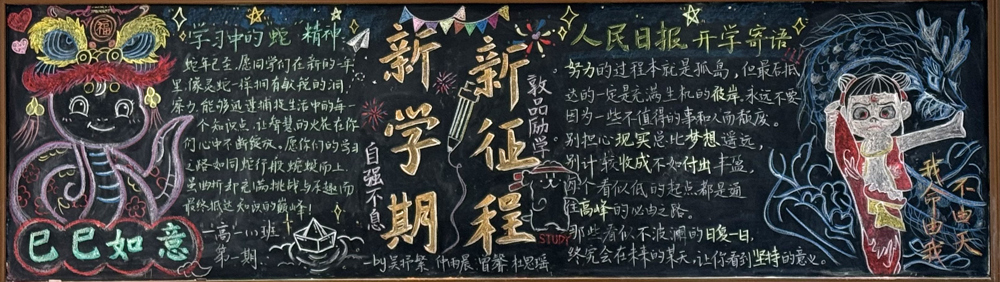 福
学习中的蛇精神
蛇年已至,愿同学们在新的一年
里,像灵蛇一样拥有敏锐的洞
察力,能够迅速捕捉生活中的每一
个知识点,让智慧的火花在你
们心中不断绽放。愿你们的学习
之路如同蛇行般蜿蜒而上,
虽曲折却充满挑战与乐趣,而
最终抵达知识的巅峰!
巳巳如意
一高一(1)班
第一期
新学期
新征程
自强不息
敦品励学
STUDY
—by吴抒蘩 仲雨晨 曾馨 杜思瑶
人民日报开学寄语
努力的过程本就是孤岛,但最后抵
达的一定是充满生机的彼岸,永远不要
因为一些不值得的事和人而颓废。
别担心现实总比梦想遥远,
别计较收成不如付出丰盈,
每个看似低的起点,都是通
往高峰的必由之路。
那些看似不波澜的日复一日,
终究会在未来的某天,让你看到坚持的意义。
我命由我
不由天